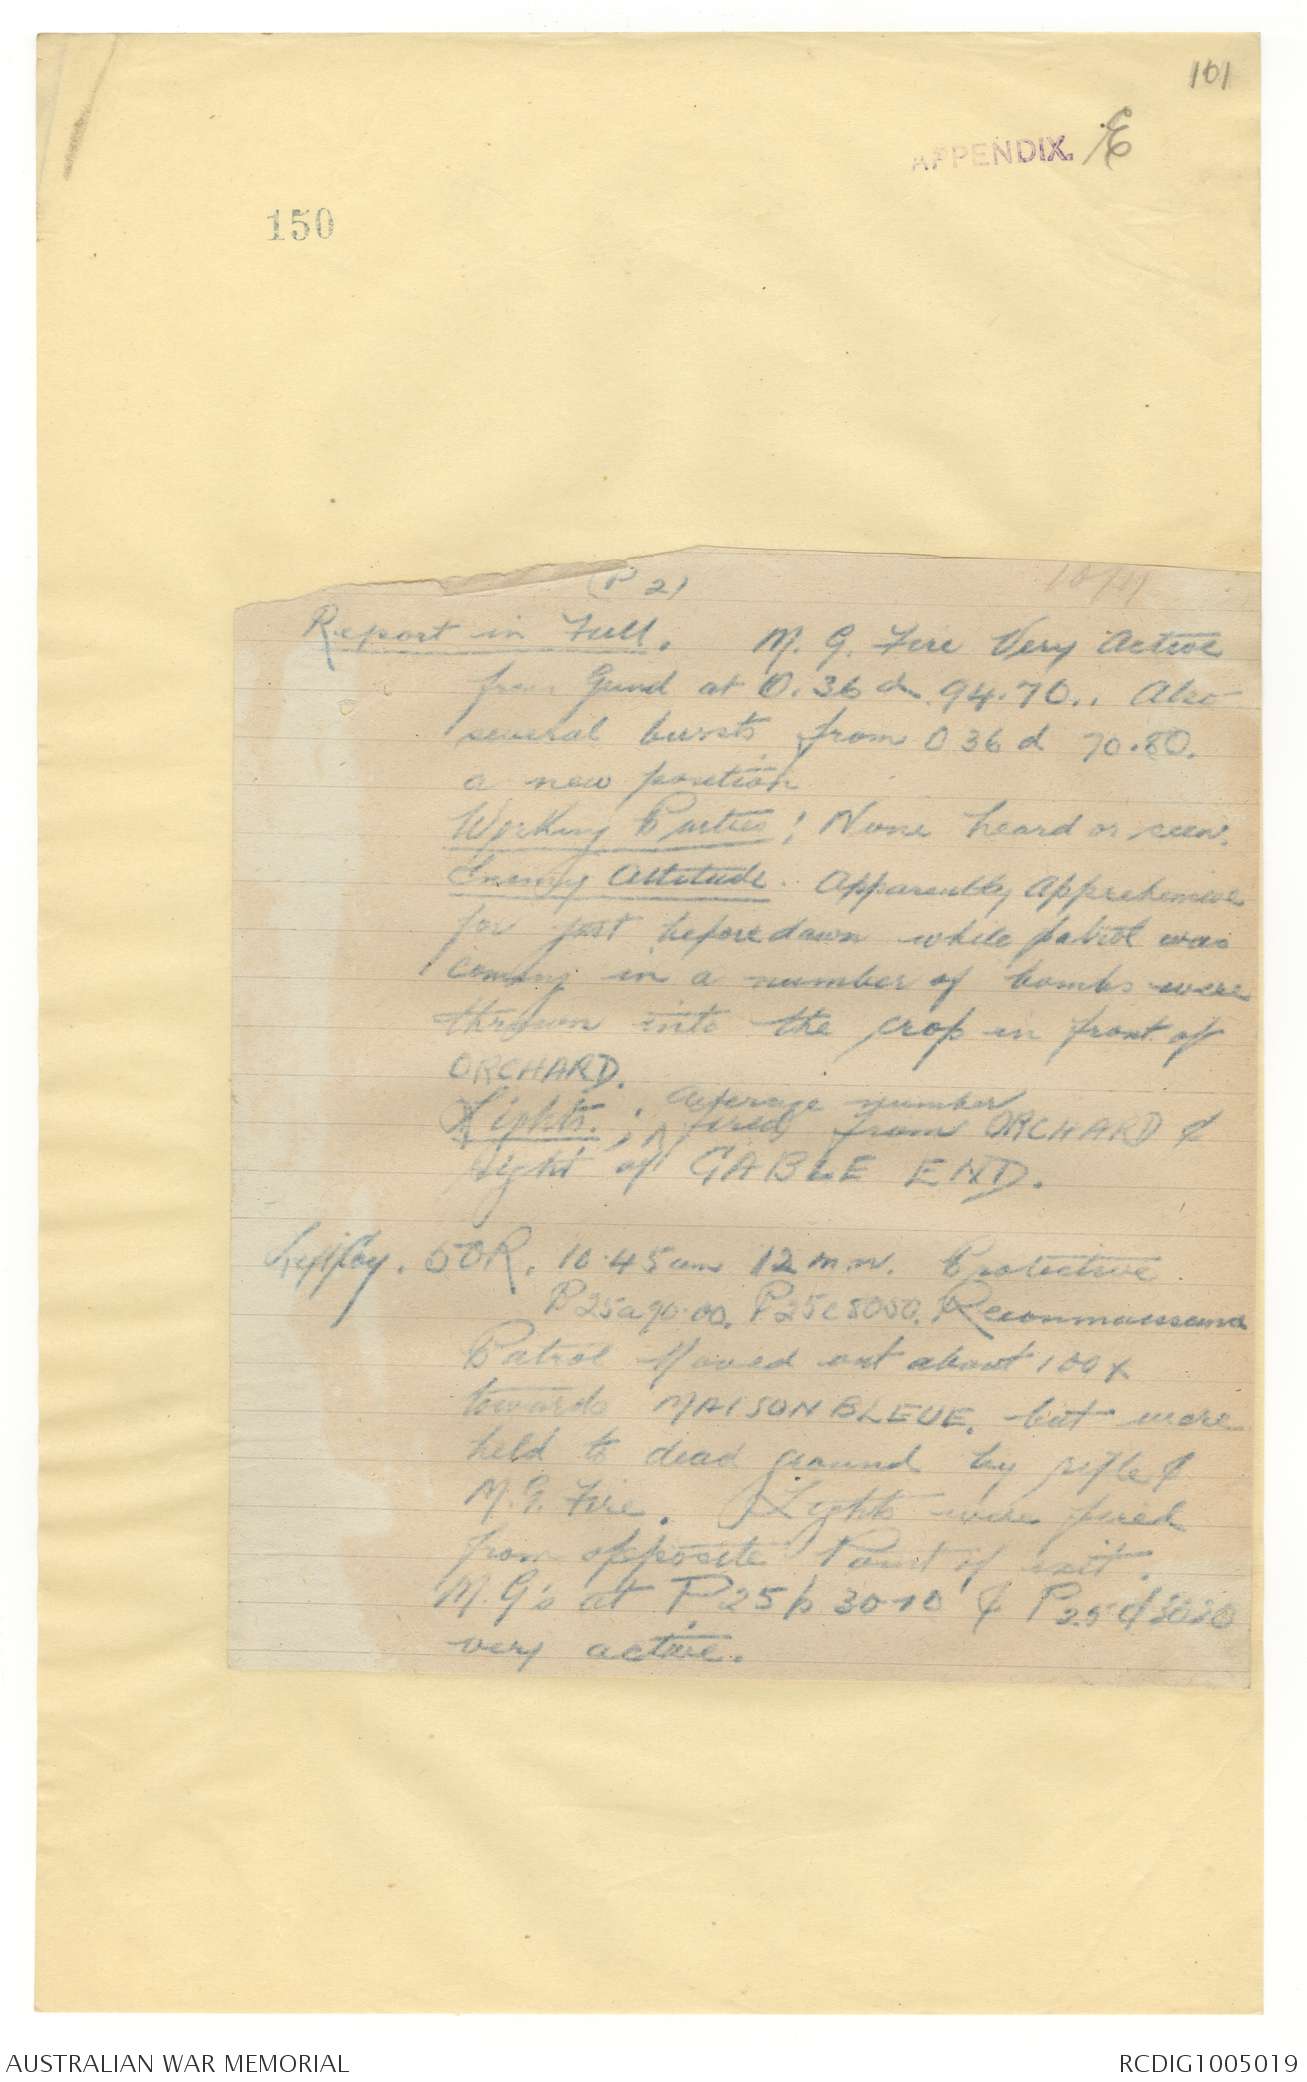 101
APPENDIX. E
150
(P 2)
Report in Full. M. G. Fire Very Active
from Gund at O. 36 d 94.70.. Also
several bursts from O 36 d 70.80.
a new position
Working Parties: None heard or seen.
Enemy Attitude. Apparently Apprehensive
for just before dawn while patrol was
coming in a number of bombs were
thrown into the crop in front of
ORCHARD.
Lights. : average number
fired from ORCHARD &
right of GABLE END.
5OR. 10.45 12 m.n. Protective
P25a90.00. P25c8050. Reconnaissance
Patrol Moved out about 100x
towards MAISON BLEUE. but were
held to dead ground by rifle &
M.G. Fire. Lights were fired
from opposite Point of exit.
M.G's at P25b 3010 & P25d3030
very active.
AUSTRALIAN WAR MEMORIAL
RCDIG1005019